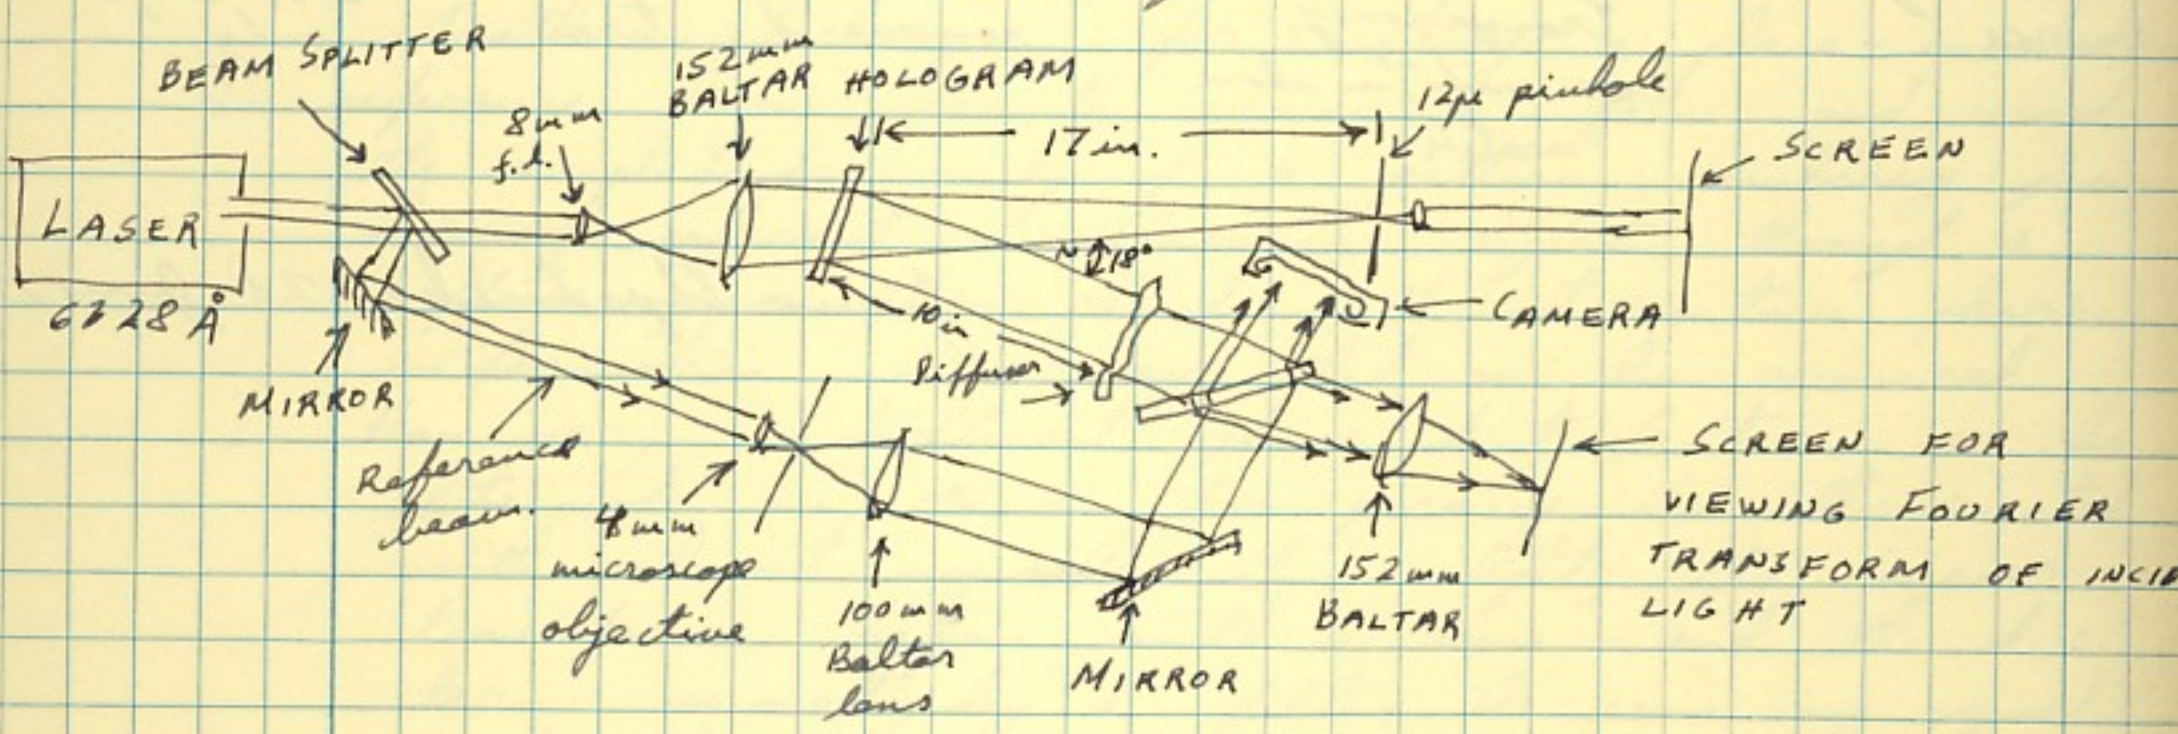 BEAM SPLITTER
152mm
BALTAR
HOLOGRAM
8mm
f.l.
17 in.
12μ pinhole
SCREEN
LASER
6328 Å
MIRROR
~18°
10 in
Diffuser
CAMERA
Reference
beam.
microscope
objective
100mm
Baltar
lens
MIRROR
152mm
BALTAR
SCREEN FOR
VIEWING FOURIER
TRANSFORM OF INCID
LIGHT